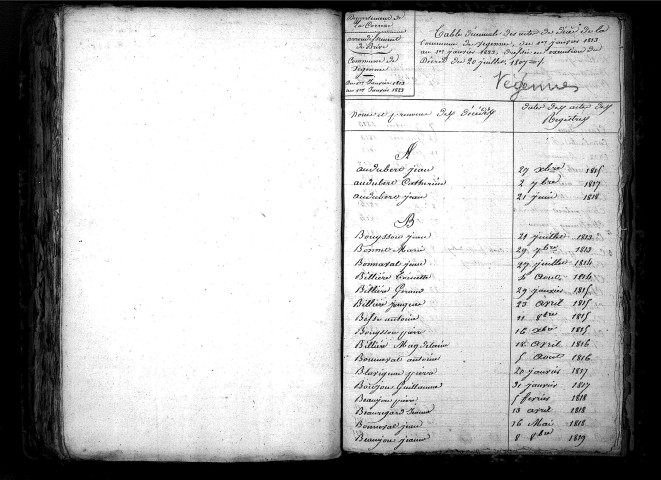 Département de
La Corrèze
arrondissement
de Brive
Commune de
Végennes
Du 1er Janvier 1813
au 1er Janvier 1823
Table décennale des actes de décès de la
Commune de Végennes, du 1er janvier 1813
au 1er janvier 1823, dressée en exécution du
Décret du 20 juillet 1807
Végennes
Noms et prénoms des décédés
Dates des actes des
Registres
A
audubert jean 27 xbre 1815
audubert Catherine 2 ybre 1817
audubert jean 21 juin 1818
B
Bouysson jean 21 juillet 1813
Bonnet Marie 29 ybre 1813
Bonnaval jean 27 juillet 1814
Billière 4 Aout 1814
Billière Geraud 29 janvier 1815
Billière jacques 23 avril 1815
Besse antoine 11 8bre 1815
Bouysson pierre 16 xbre 1815
Billière Magdelaine 18 avril 1816
Bonneval antoine 5 Aout 1816
Blavignac pierre 20 janvier 1817
Boujou Guillaume 31 janvier 1817
Beaujou pierre 5 fevrier 1818
Beauregard 13 avril 1818
Bonneval jean 16 Mai 1818
Beaujou jeanne 8 8bre 1819